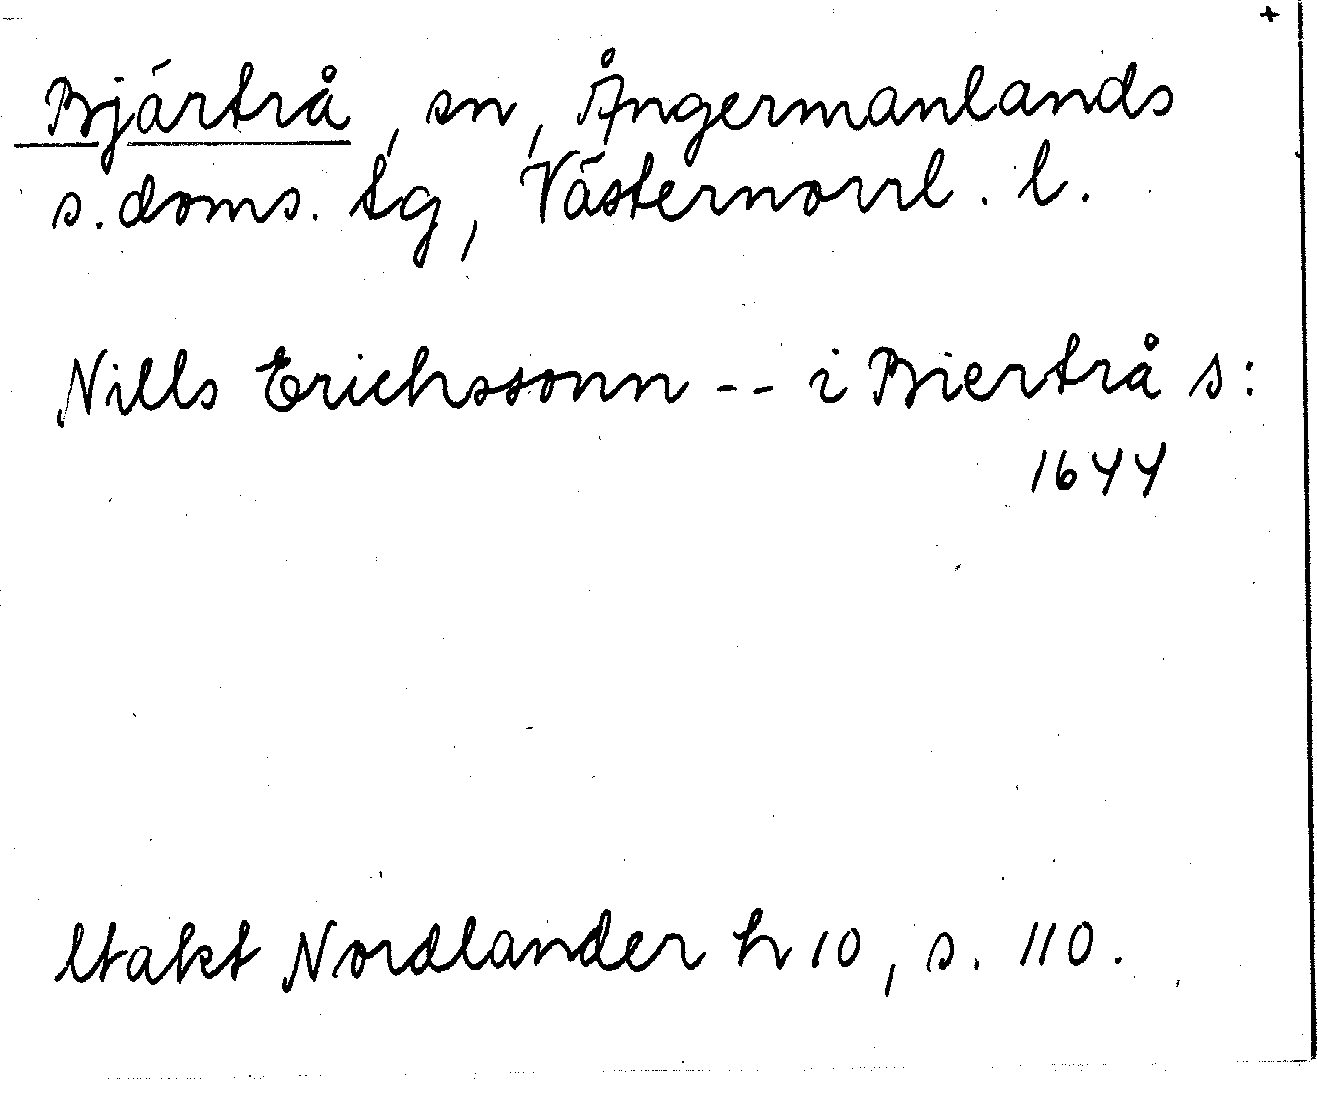 +
Bjärtrå, sn, Ångermanlands
s. doms. tg, Västernorrl. l.
Nills Erichssonn -- i Biertrå s:
1644
ltakt Nordlander h 10, s. 110.